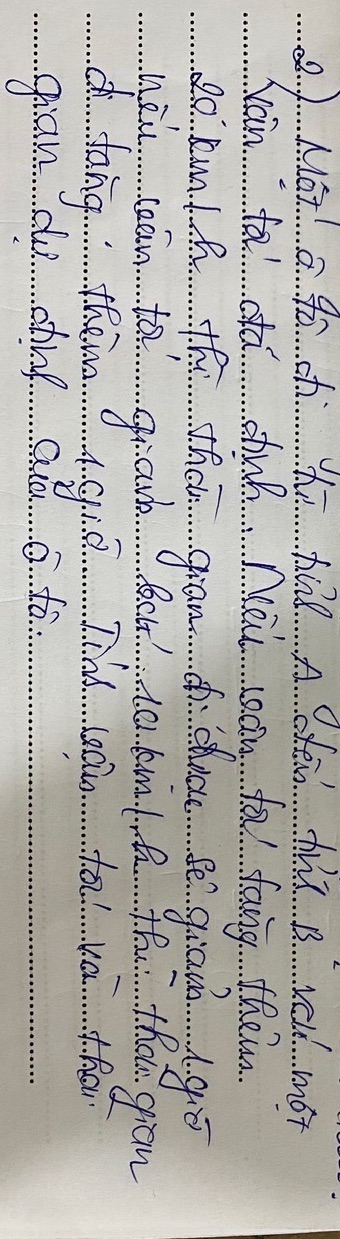 2) Một ô tô đi từ tỉnh A đến tỉnh B với một
vận tốc đã định. Nếu vận tốc tăng thêm
20 km/h thì thời gian đi được sẽ giảm 1 giờ
nếu vận tốc giảm bớt 10 km/h thì thời gian
đi tăng thêm 1 giờ Tính vận tốc và thời
gian dự định của ô tô.